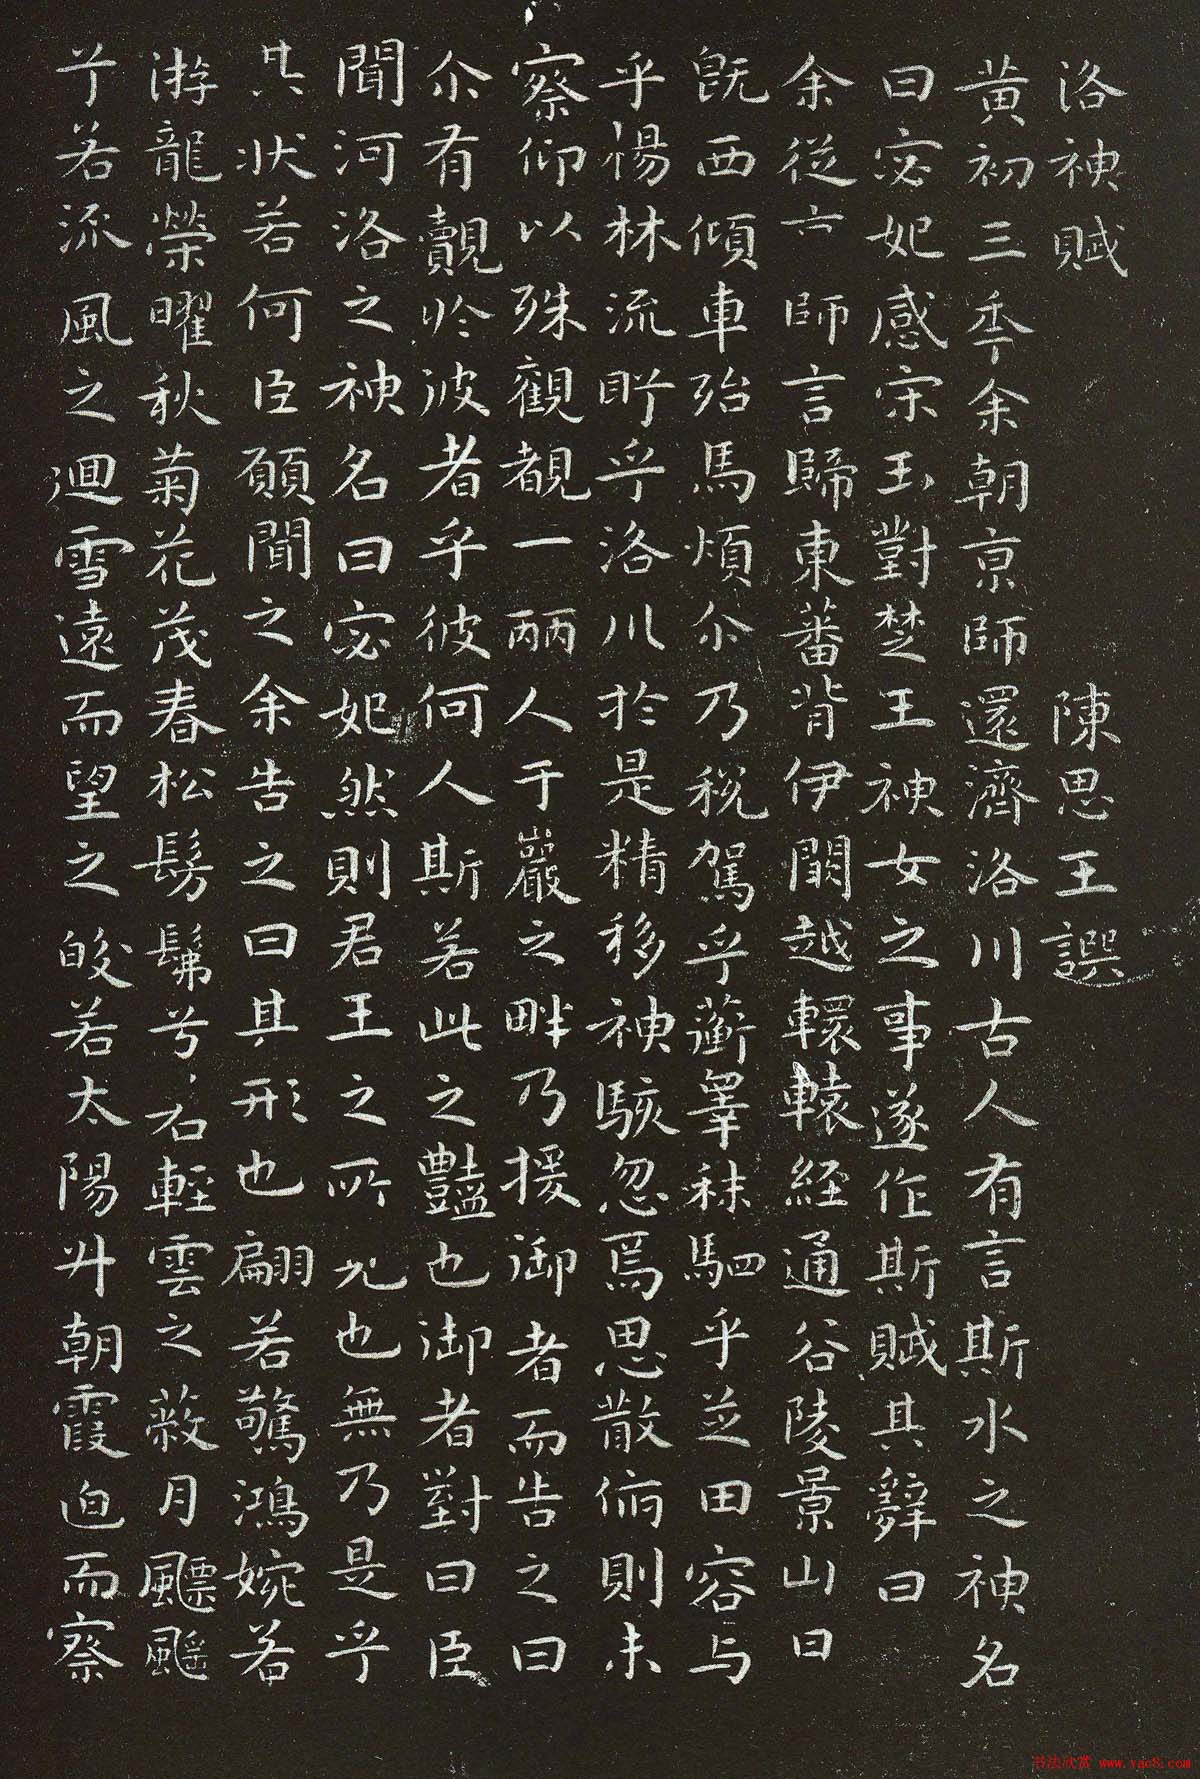 洛神賦　陳思王譔
黃初三秊余朝京師還濟洛川古人有言斯水之神名
曰宓妃感宋玉對楚王神女之事遂作斯賦其辭曰
余從京師言歸東蕃背伊闕越轘轅経通谷陵景山日
既西傾車殆馬煩尒乃税駕乎蘅睾秣駟乎芝田容与
乎楊林流眄乎洛川於是精移神駭忽焉思散俯則未
察仰以殊觀覩一麗人于巖之畔乃援御者而告之曰
尒有覿於波者乎彼何人斯若此之豔也御者對曰臣
聞河洛之神名曰宓妃然則君王之所見也無乃是乎
其状若何臣願聞之余告之曰其形也翩若驚鴻婉若
游龍榮曜秋菊花茂春松髣髴兮若輕雲之蔽月飄颻
兮若流風之迴雪遠而望之皎若太陽升朝霞迫而察
书法欣赏 www.yac8.com